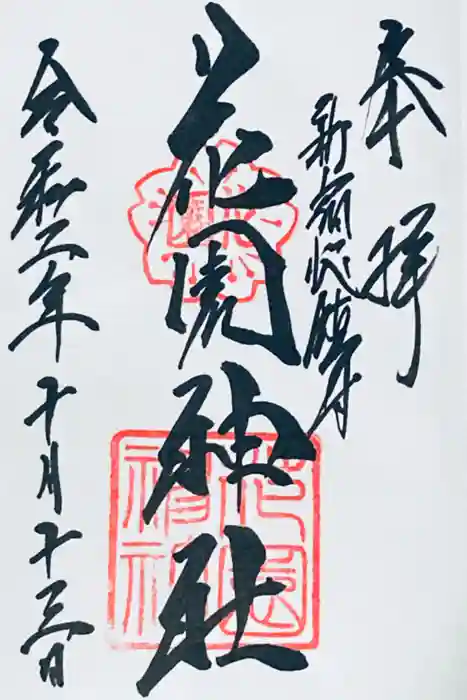 奉拝
新宿総鎮守
花園神社
令和三年十月十三日
花園
神社